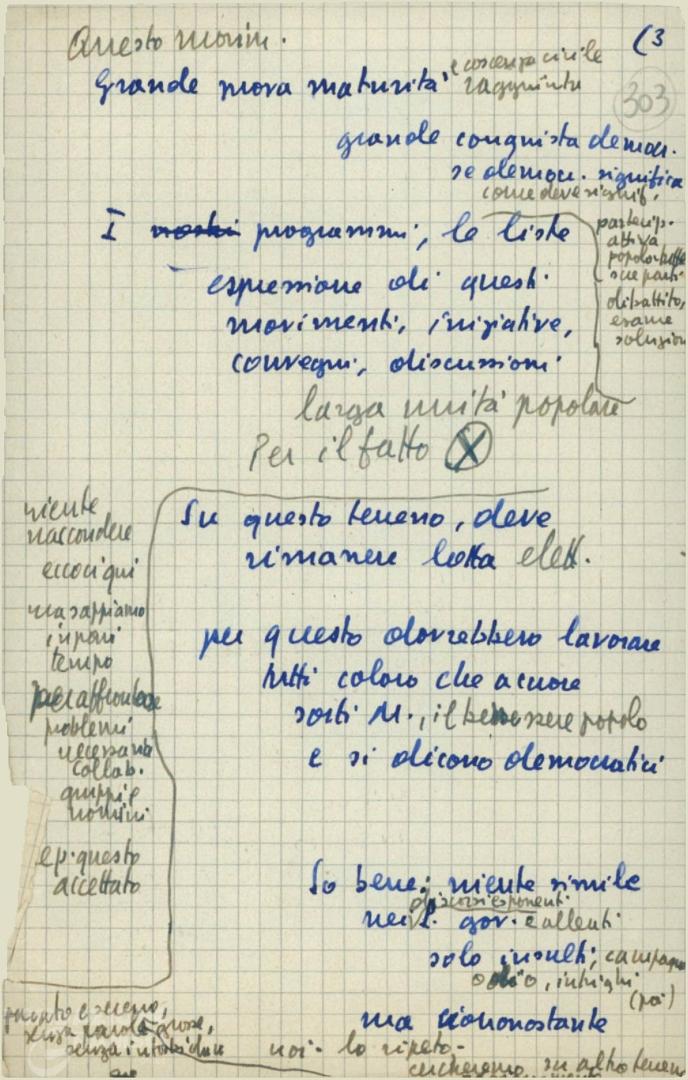 Questo movim.
(3
303
Grande prova maturità
e coscienza civile
raggiunta
grande conquista democr.
se democr. significa
come deve signif.
partecip.
attiva
popolo tutte
sue parti
dibattito,
esame
soluzioni
I nostri programmi, le liste
espressione di questi
movimenti, iniziative,
convegni, discussioni
larga unità popolare
Per il fatto X
Su questo terreno, deve
rimanere lotta elett.
per questo dovrebbero lavorare
tutti coloro che a cuore
sorti M., il benessere popolo
e si dicono democratici
niente
nascondere
eccoci qui
ma sappiamo
in pari
tempo
per affrontare
problemi
necessaria
collab.
gruppi e
uomini
e p. questo
accettato
So bene: niente simile
discorsi esponenti
nei gov. e alleati
solo insulti, campagna
odio, intrighi
(poi)
ma ciononostante
noi - lo ripeto -
cercheremo su altro terreno
pacato e sereno,
senza parole grosse,
senza